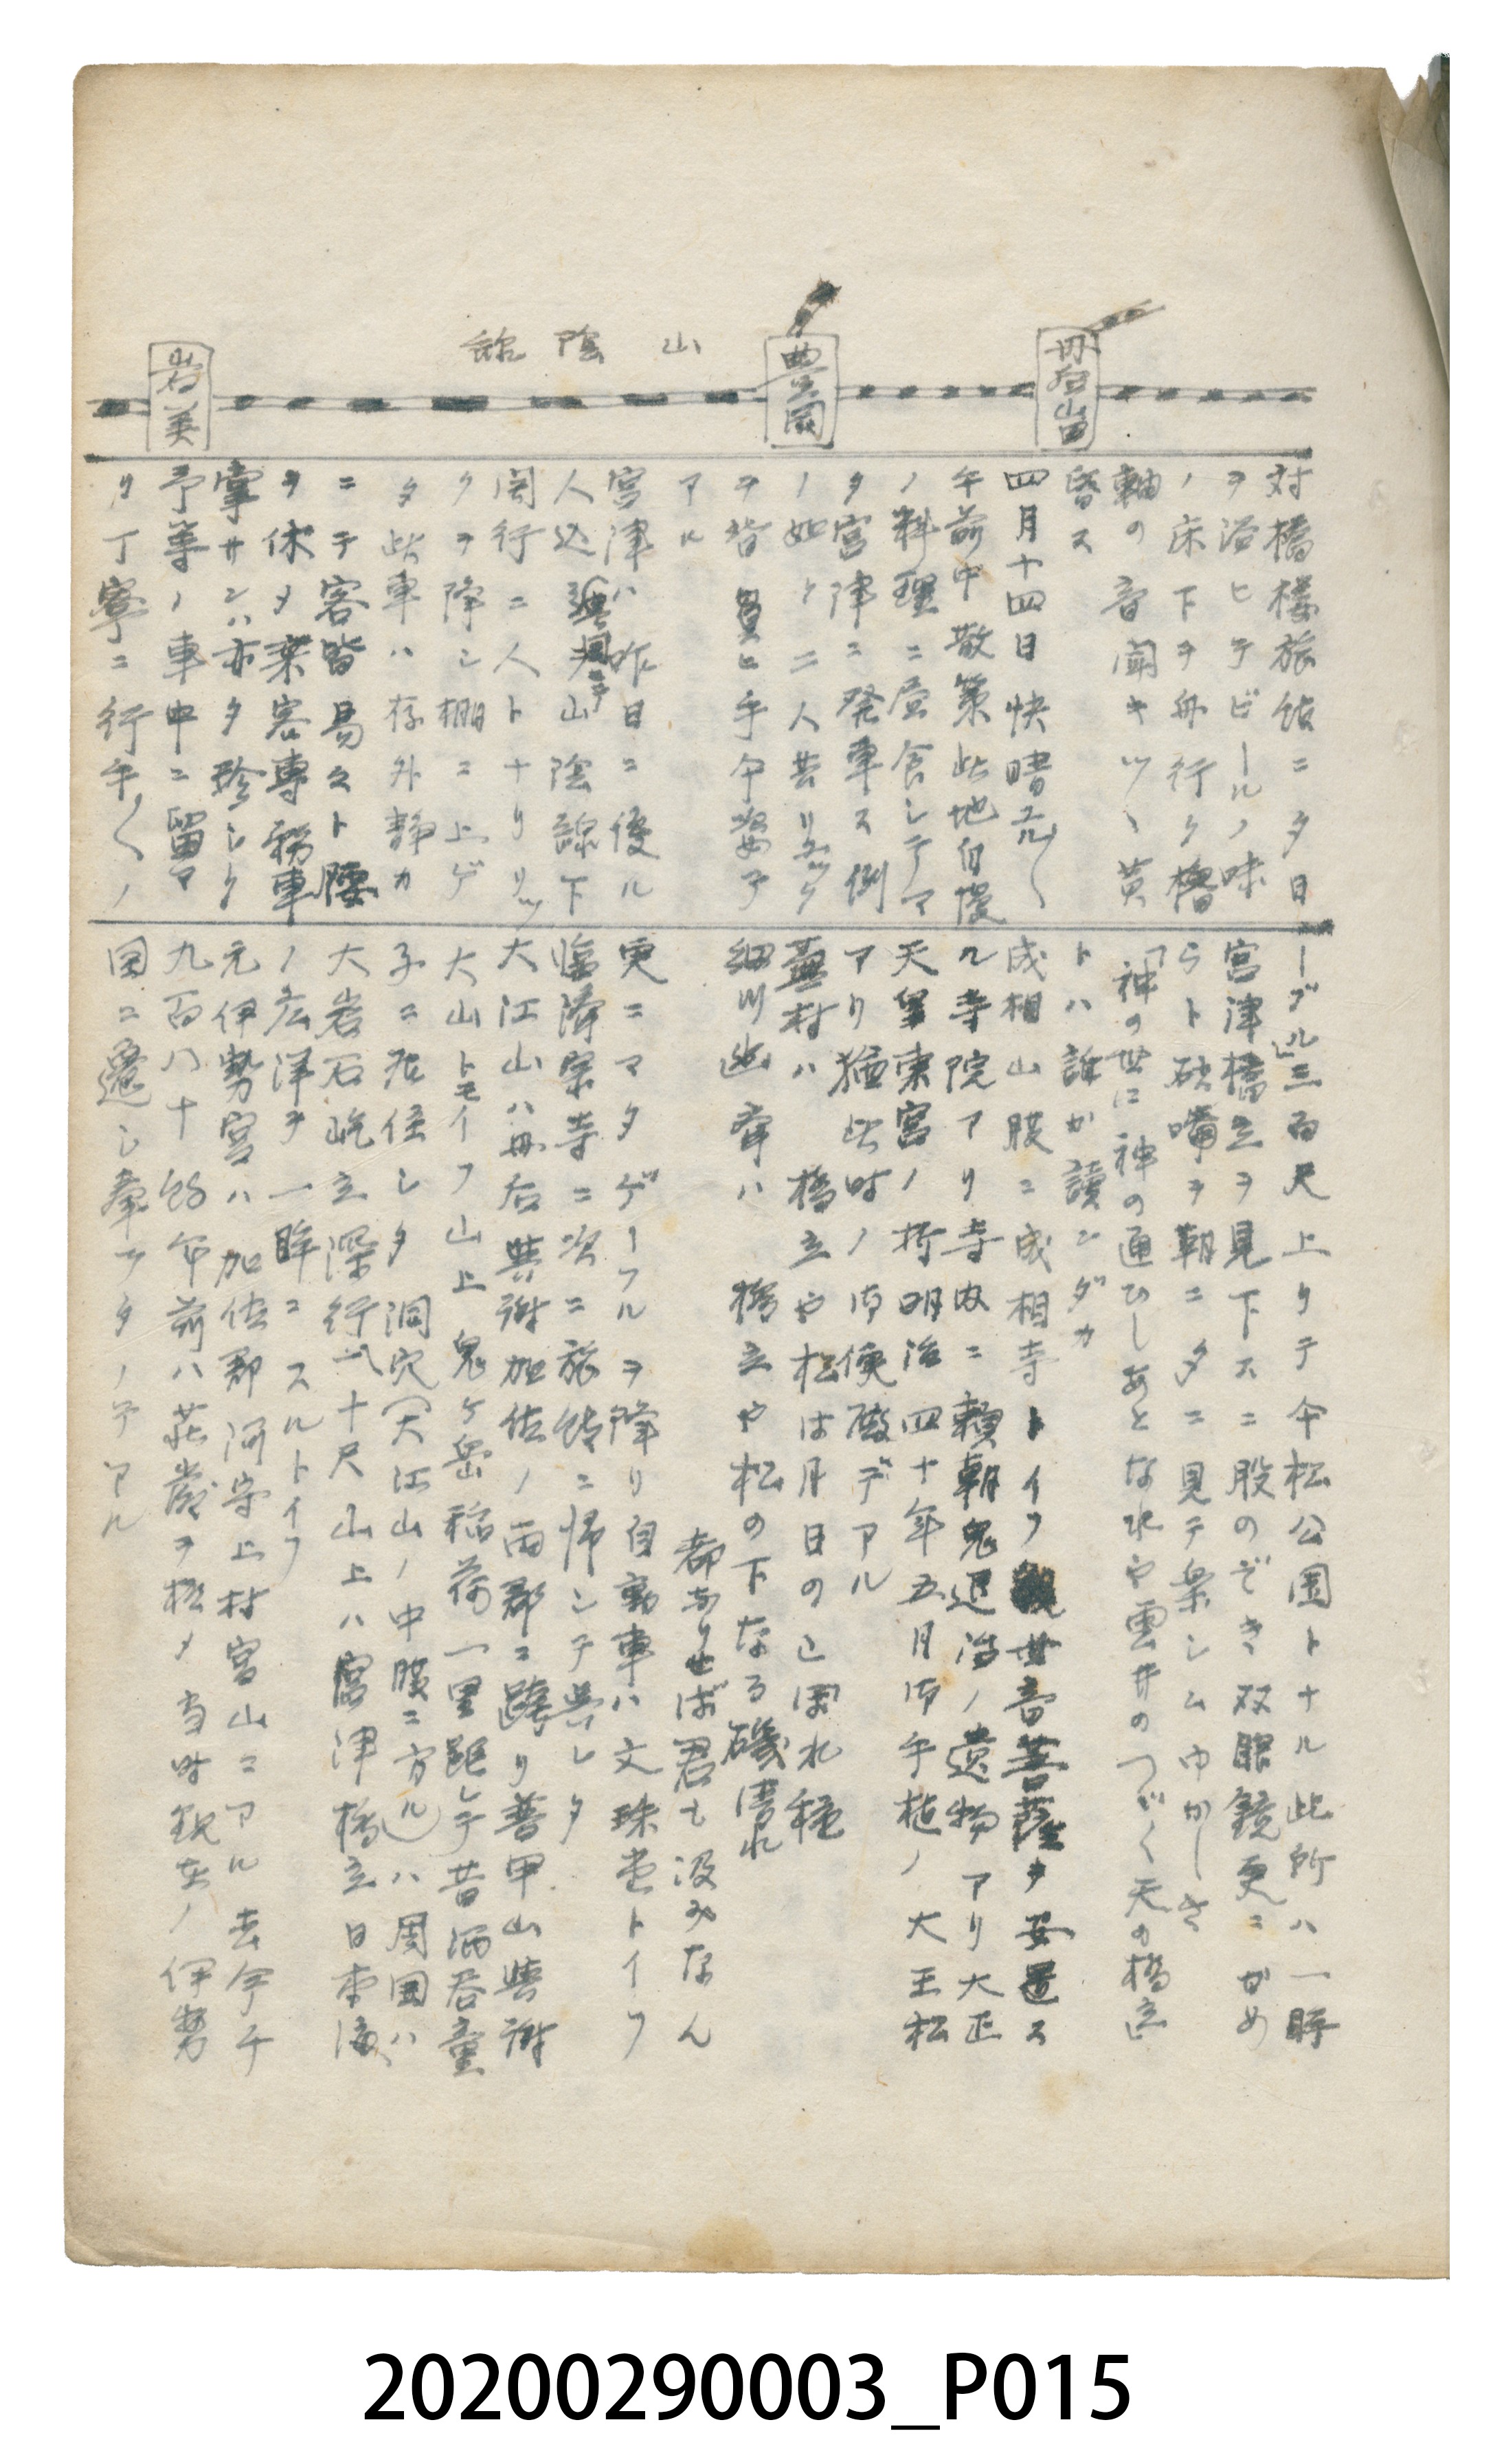 丹後山田
豊岡
山陰線
岩美
対橋楼旅館ニ夕日
ヲ浴ヒテビールノ味
ノ床下ヲ舟行ク櫓
軸の音聞キツヽ黄
昏ス
四月十四日快晴
午前中散策此地自慢
ノ料理ニ昼食シテマ
タ宮津ニ発車ス例
ノ如ク二人共リュック
ヲ背負ヒ手
アル
宮津ハ昨日ニ優ル
人込 豊岡ニテ山陰線下
関行ニ人トナリリッ
クヲ降シ棚ニ上ゲ
タ此車ハ存外静カ
ニテ客皆易々ト腰
ヲ休タ乗客専務車
掌サンハ亦タ珍シク
予等ノ車中ニ留マ
リ丁寧ニ行年〱ノ
ーブル三百尺上リテ今松公園トナル此所ハ一眸
宮津橋立ヲ見下スニ股のぞき双眼鏡更ニかめ
らト砂嘴ヲ朝ニ夕ニ見テ楽シムゆかしさ
「神の世に神の通ひしあとなれや雲井のつゞく天の橋立
トハ誰が讀ンダカ
成相山腹ニ成相寺トイフ観世音菩薩ヲ安置ス
ル寺院アリ寺内ニ頼朝鬼退治ノ遺物アリ大正
天皇東宮ノ折明治四十年五月御手植ノ大王松
アリ猶此時ノ御便殿デアル
蕪村ハ 橋立や松は月日のこぼれ種
細川幽斎ハ 橋立や松の下なる磯清水
都なりせば君も汲みなん
更ニマタゲーブルヲ降リ自動車ハ文珠堂トイフ
臨済禅寺ニ次ニ旅館ニ帰シテ労レタ
大江山ハ丹后与謝加佐ノ両郡ニ跨リ普甲山与謝
大山トモイフ山上鬼ケ岳稲荷一里距レテ昔酒呑童
子ニ居住シタ洞穴(大江山ノ中腹ニ有ル)ハ周囲ハ
大岩石屹立深行八十尺山上ハ宮津橋立日本海
ノ広洋ヲ一眸ニスルトイフ
元伊勢宮ハ加佐郡河守上村宮山ニアル去今千
九百八十餘年前ハ荘厳ヲ極メ当時現在ノ伊勢
国ニ遷シ奉ツタノデアル
20200290003_P015